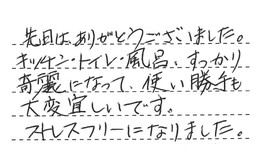 先日は、ありがとうございました。
キッチン・トイレ・風呂、すっかり
奇麗になって、使い勝手も
大変宜しいです。
ストレスフリーになりました。